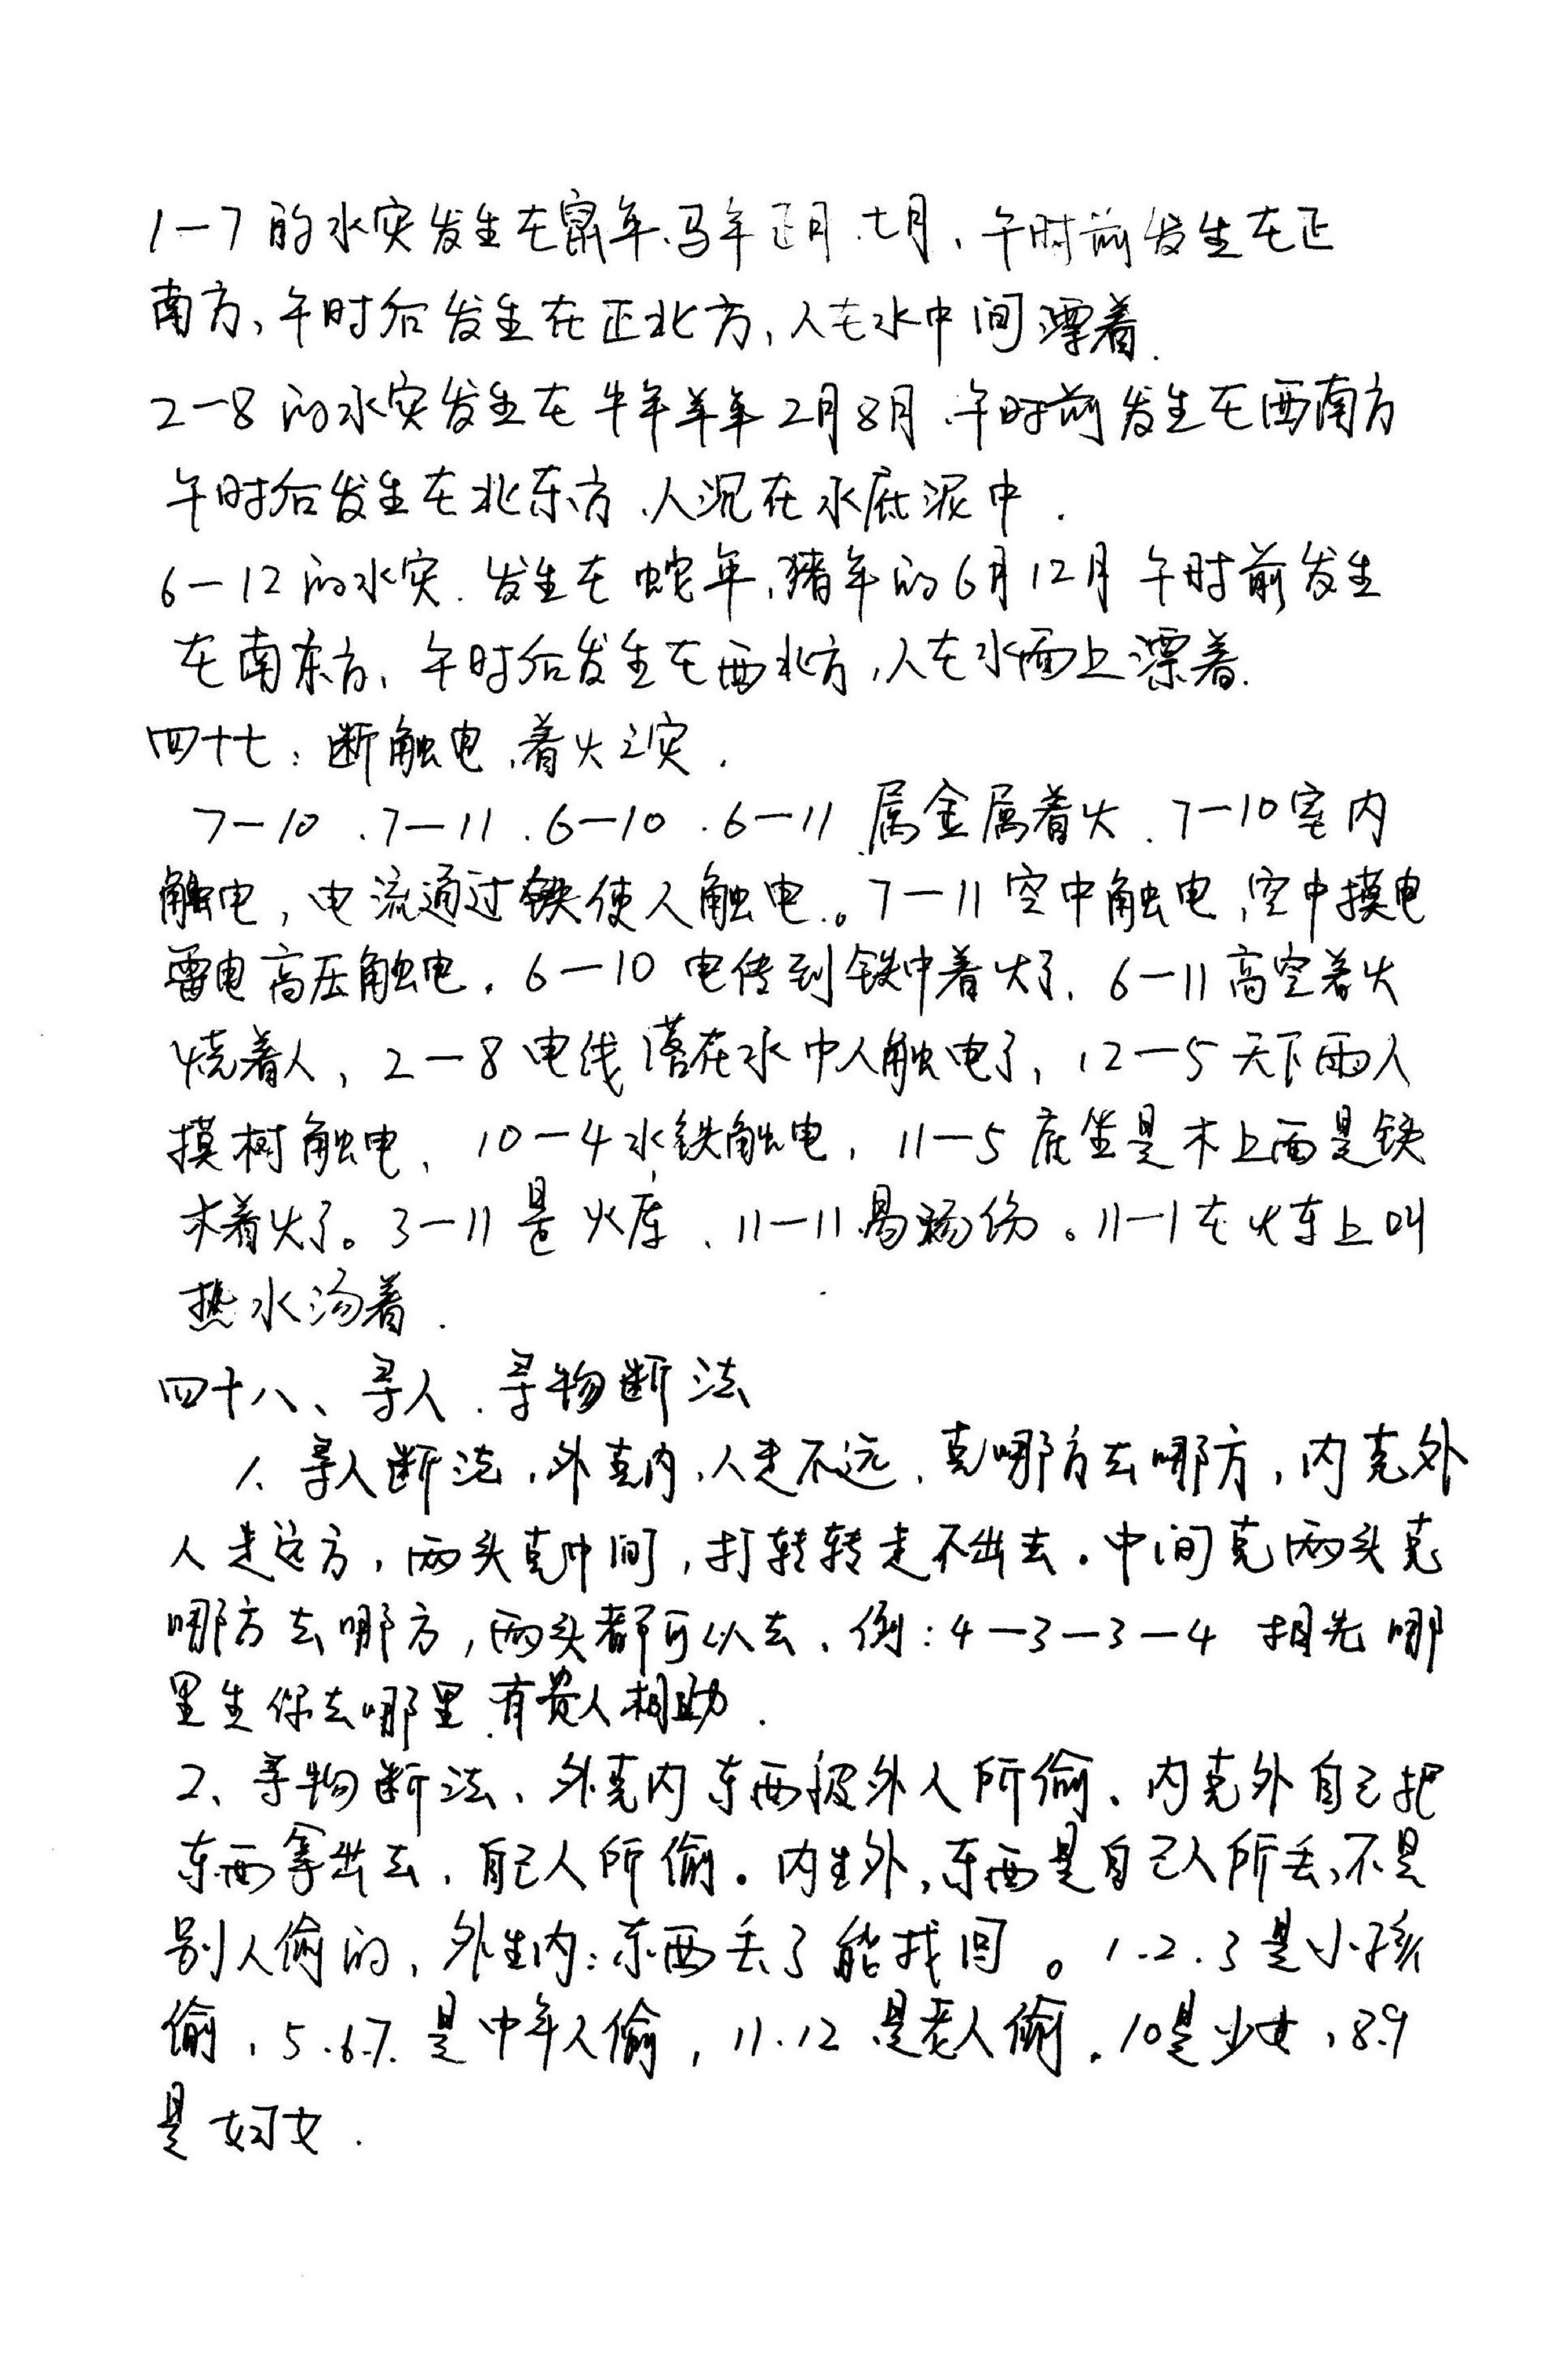 1—7的水灾发生在鼠年、马年正月、七月、午时前发生在正
南方,午时后发生在正北方,人在水中间漂着.
2—8的水灾发生在牛年羊年2月8月、午时前发生在西南方
午时后发生在北东方、人沉在水底泥中.
6—12的水灾.发生在蛇年,猪年的6月12月午时前发生
在南东方、午时后发生在西北方,人在水面上漂着.
四十七:断触电、着火之灾.
7—10、7—11、6—10、6—11属金属着火、7—10室内
触电,电流通过铁使人触电。7—11空中触电,空中摸电
雷电高压触电。6—10电传到铁中着火了、6—11高空着火
烧着人,2—8电线落在水中人触电了,12—5天下雨人
摸树触电、10—4水铁触电,11—5底坐是木上面是铁
木着火了。3—11是火库、11—11易烫伤。11—1在火车上叫
热水汤着.
四十八、寻人、寻物断法
1、寻人断法,外克内,人走不远、克哪方去哪方,内克外
人走远方,两头克中间,打转转走不出去。中间克两头克
哪方去哪方,两头都可以去、例:4—3—3—4 相先哪
里生你去哪里、有贵人相助.
2、寻物断法、外克内东西被外人所偷、内克外自己把
东西拿出去,自己人所偷。内生外,东西是自己人所丢,不是
别人偷的,外生内:东西丢了能找回。1.2.3是小孩
偷,5.6.7.是中年人偷,11.12是老人偷.10是少女,8.9
是妇女.